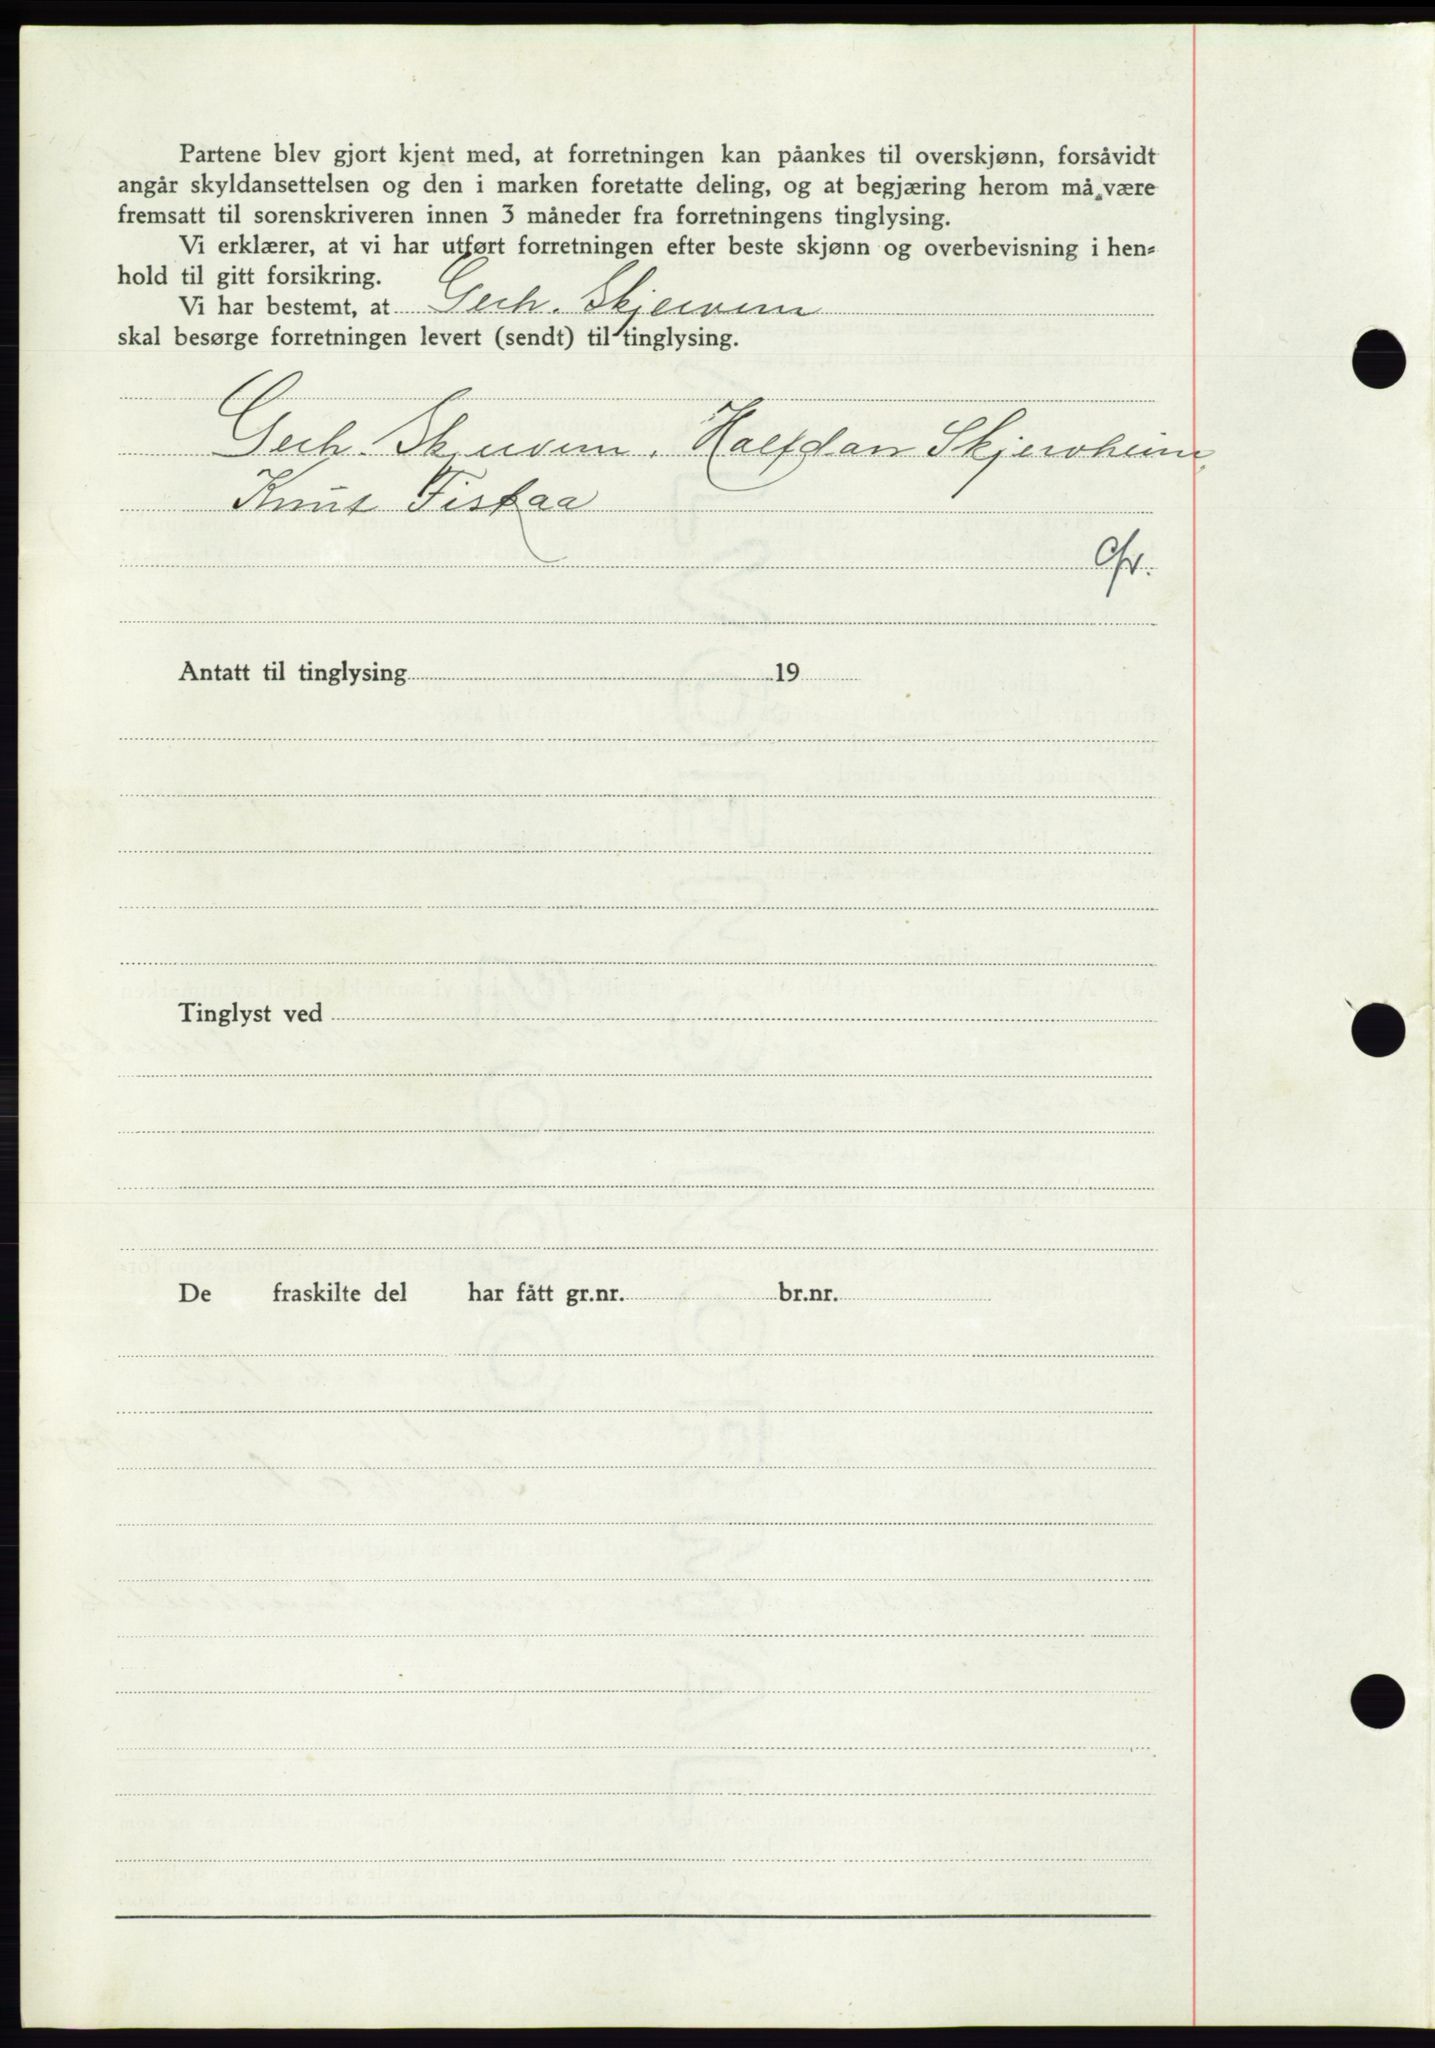 Partene blev gjort kjent med, at forretningen kan påankes til overskjønn, forsåvidt
angår skyldansettelsen og den i marken foretatte deling, og at begjæring herom må være
fremsatt til sorenskriveren innen 3 måneder fra forretningens tinglysing.
Vi erklærer, at vi har utført forretningen efter beste skjønn og overbevisning i hen-
hold til gitt forsikring.
Vi har bestemt, at Gerh. Skjervem
skal besørge forretningen levert (sendt) til tinglysing.
Gerh. Skjervem, Halfdan Skjervheim,
Knut Fiskaa
Antatt til tinglysing 19
Tinglyst ved
De fraskilte del har fått gr.nr. br.nr.